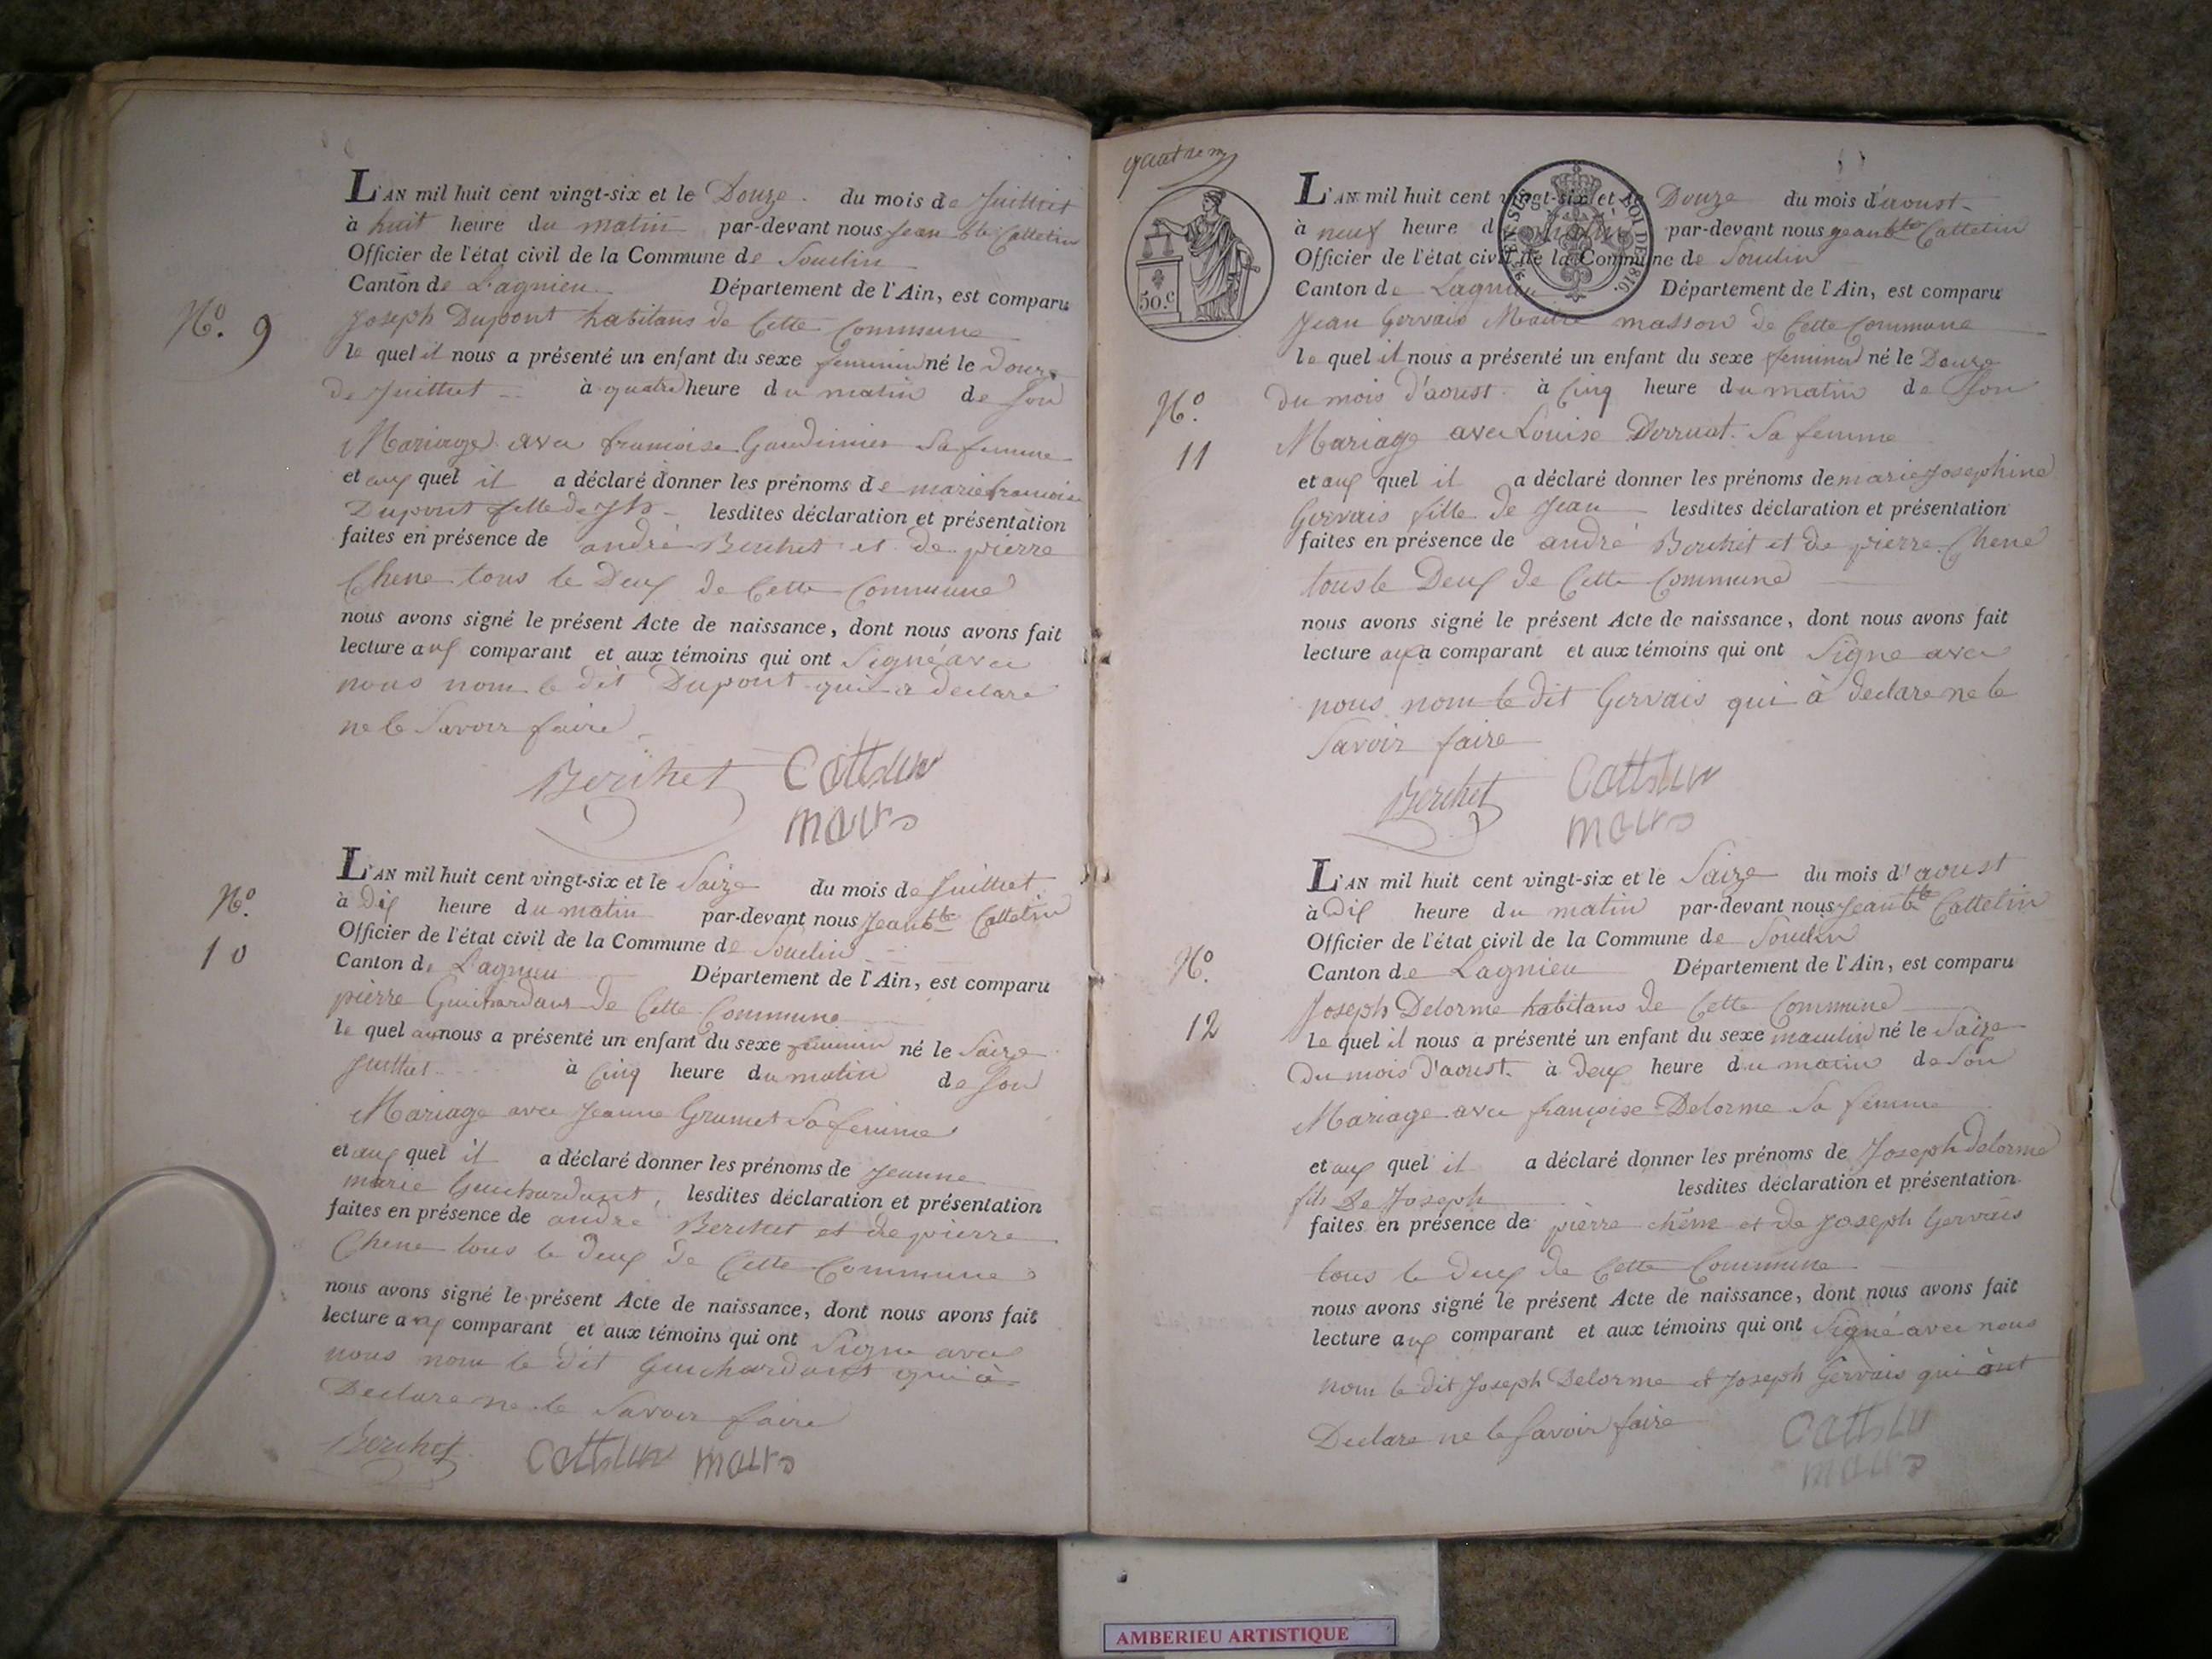 L'AN mil huit cent vingt-six et le Douze du mois de Juilliet
à huit heure du matin par-devant nous Jean bte Cattelin
Officier de l'état civil de la Commune de Soudin
Canton de Lagnieu Département de l'Ain, est comparu
Joseph Dupont habitans de Cette Commune
No. 9
le quel il nous a présenté un enfant du sexe feminin né le Douze
de Juilliet à quatre heure du matin de Son
Mariage avec francoise Gaudinier Sa femme
et aux quel il a déclaré donner les prénoms de marie francoise
Dupont fille de Jh lesdites déclaration et présentation
faites en présence de andré Berthet et de pierre
Chene tous le Deux de Cette Commune
nous avons signé le présent Acte de naissance, dont nous avons fait
lecture aux comparant et aux témoins qui ont Signé avec
nous nom le dit Dupont qui a declare
ne le Savoir faire
Berthet Cattelin
maire
L'AN mil huit cent vingt-six et le Saize du mois de Juilliet
No.
10
à Dix heure du matin par-devant nous Jean bte Cattelin
Officier de l'état civil de la Commune de Soudin
Canton de Lagnieu Département de l'Ain, est comparu
pierre Guichardant de Cette Commune
le quel nous a présenté un enfant du sexe feminin né le Saize
Juilliet à Cinq heure du matin de Son
Mariage avec Jeanne Grumet Sa femme
et aux quel il a déclaré donner les prénoms de Jeanne
marie Guichardant, lesdites déclaration et présentation
faites en présence de andré Berthet et de pierre
Chene tous le deux de Cette Commune
nous avons signé le présent Acte de naissance, dont nous avons fait
lecture aux comparant et aux témoins qui ont Signe avec
nous nom le dit Guichardant qui à
Declare ne le Savoir faire
Berthet Cattelin maire
50.c
LOI DE 1816.
L'AN mil huit cent vingt-six et le Douze du mois d'aoust
à neuf heure du matin par-devant nous jean bte Cattelin
Officier de l'état civil de la Commune de Soudin
Canton de Lagnieu Département de l'Ain, est comparu
Jean Gervais Maitre masson de Cette Commune
le quel il nous a présenté un enfant du sexe feminin né le Douze
No.
11
du mois d'aoust à Cinq heure du matin de Son
Mariage avec Louise Derruat Sa femme
et aux quel il a déclaré donner les prénoms de marie Josephine
Gervais fille de Jean lesdites déclaration et présentation
faites en présence de andré Berthet et de pierre Chene
tous le Deux de Cette Commune
nous avons signé le présent Acte de naissance, dont nous avons fait
lecture comparant et aux témoins qui ont Signe avec
nous nom le dit Gervais qui à declare ne le
Savoir faire
Berthet Cattelin
maire
L'AN mil huit cent vingt-six et le Saize du mois d'aoust
à Dix heure du matin par-devant nous Jean bte Cattelin
Officier de l'état civil de la Commune de Soudin
No.
12
Canton de Lagnieu Département de l'Ain, est comparu
Joseph Delorme habitans de Cette Commune
le quel il nous a présenté un enfant du sexe masculin né le Saize
Du mois d'aoust. à Deux heure du matin de Son
Mariage avec françoise Delorme Sa femme
et aux quel il a déclaré donner les prénoms de Joseph Delorme
fils De Joseph lesdites déclaration et présentation
faites en présence de pierre chêne et de Joseph Gervais
tous le deux de Cette Commune
nous avons signé le présent Acte de naissance, dont nous avons fait
lecture aux comparant et aux témoins qui ont Signé avec nous
nom le dit Joseph Delorme et Joseph Gervais qui ont
Declare ne le Savoir faire
Cattelin
maire
AMBERIEU ARTISTIQUE